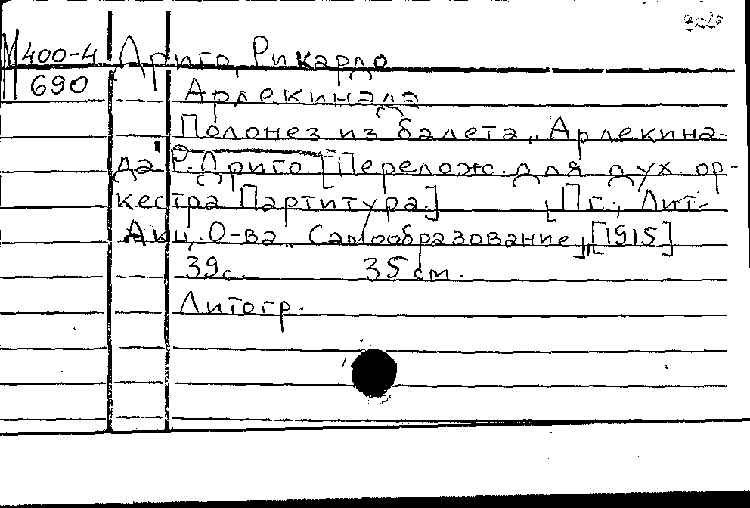 М 400-4 Дриго, Рикардо
690
Арлекинада
Полонез из балета „Арлекина-
да" Р. Дриго [Перелож. для дух. ор-
кестра Партитура.] [Пг., Лит.
Акц. О-ва „Самообразование", [1915]
39 с. 35 см.
Литогр.